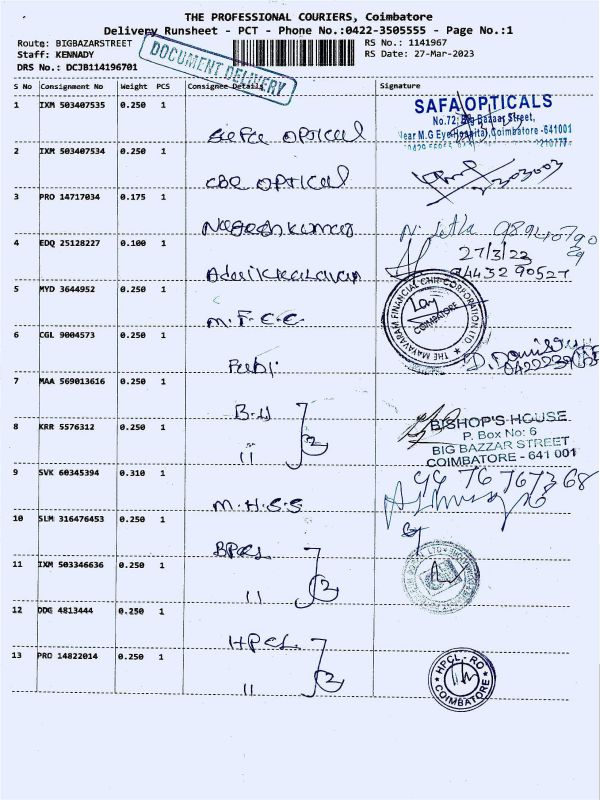 THE PROFESSIONAL COURIERS, Coimbatore
Delivery Runsheet - PCT - Phone No.:0422-3505555 - Page No.:1
Route: BIGBAZARSTREET
Staff: KENNADY
DRS No.: DCJB114196701
DOCUMENT DELIVERY
RS No.: 1141967
RS Date: 27-Mar-2023
S No Consignment No Weight PCS Consignee Details Signature
1 IXM 503407535 0.250 1 Safa OPTICAL
SAFA OPTICALS
No.72, Big Bazaar Street,
Near M.G Eye Hospital, Coimbatore -641001
2 IXM 503407534 0.250 1 CBE OPTICAL
3 PRO 14717034 0.175 1 Nageshkumar
4 EDQ 25128227 0.100 1
27/3/23
9443290527
5 MYD 3644952 0.250 1 M.F.C.C.
THE MAYAVARAM FINANCIAL CHIT CORPORATION LTD.
COIMBATORE
6 CGL 9004573 0.250 1
7 MAA 569013616 0.250 1 B.H
8 KRR 5576312 0.250 1 11 2
BISHOP'S HOUSE
P. Box No: 6
BIG BAZZAR STREET
COIMBATORE - 641 001
9 SVK 60345394 0.310 1 M.H.S.S
10 SLM 316476453 0.250 1 BPCL
11 IXM 503346636 0.250 1 11 2
12 DDG 4813444 0.250 1 HPCL
13 PRO 14822014 0.250 1 11 2
HPCL - RO
COIMBATORE